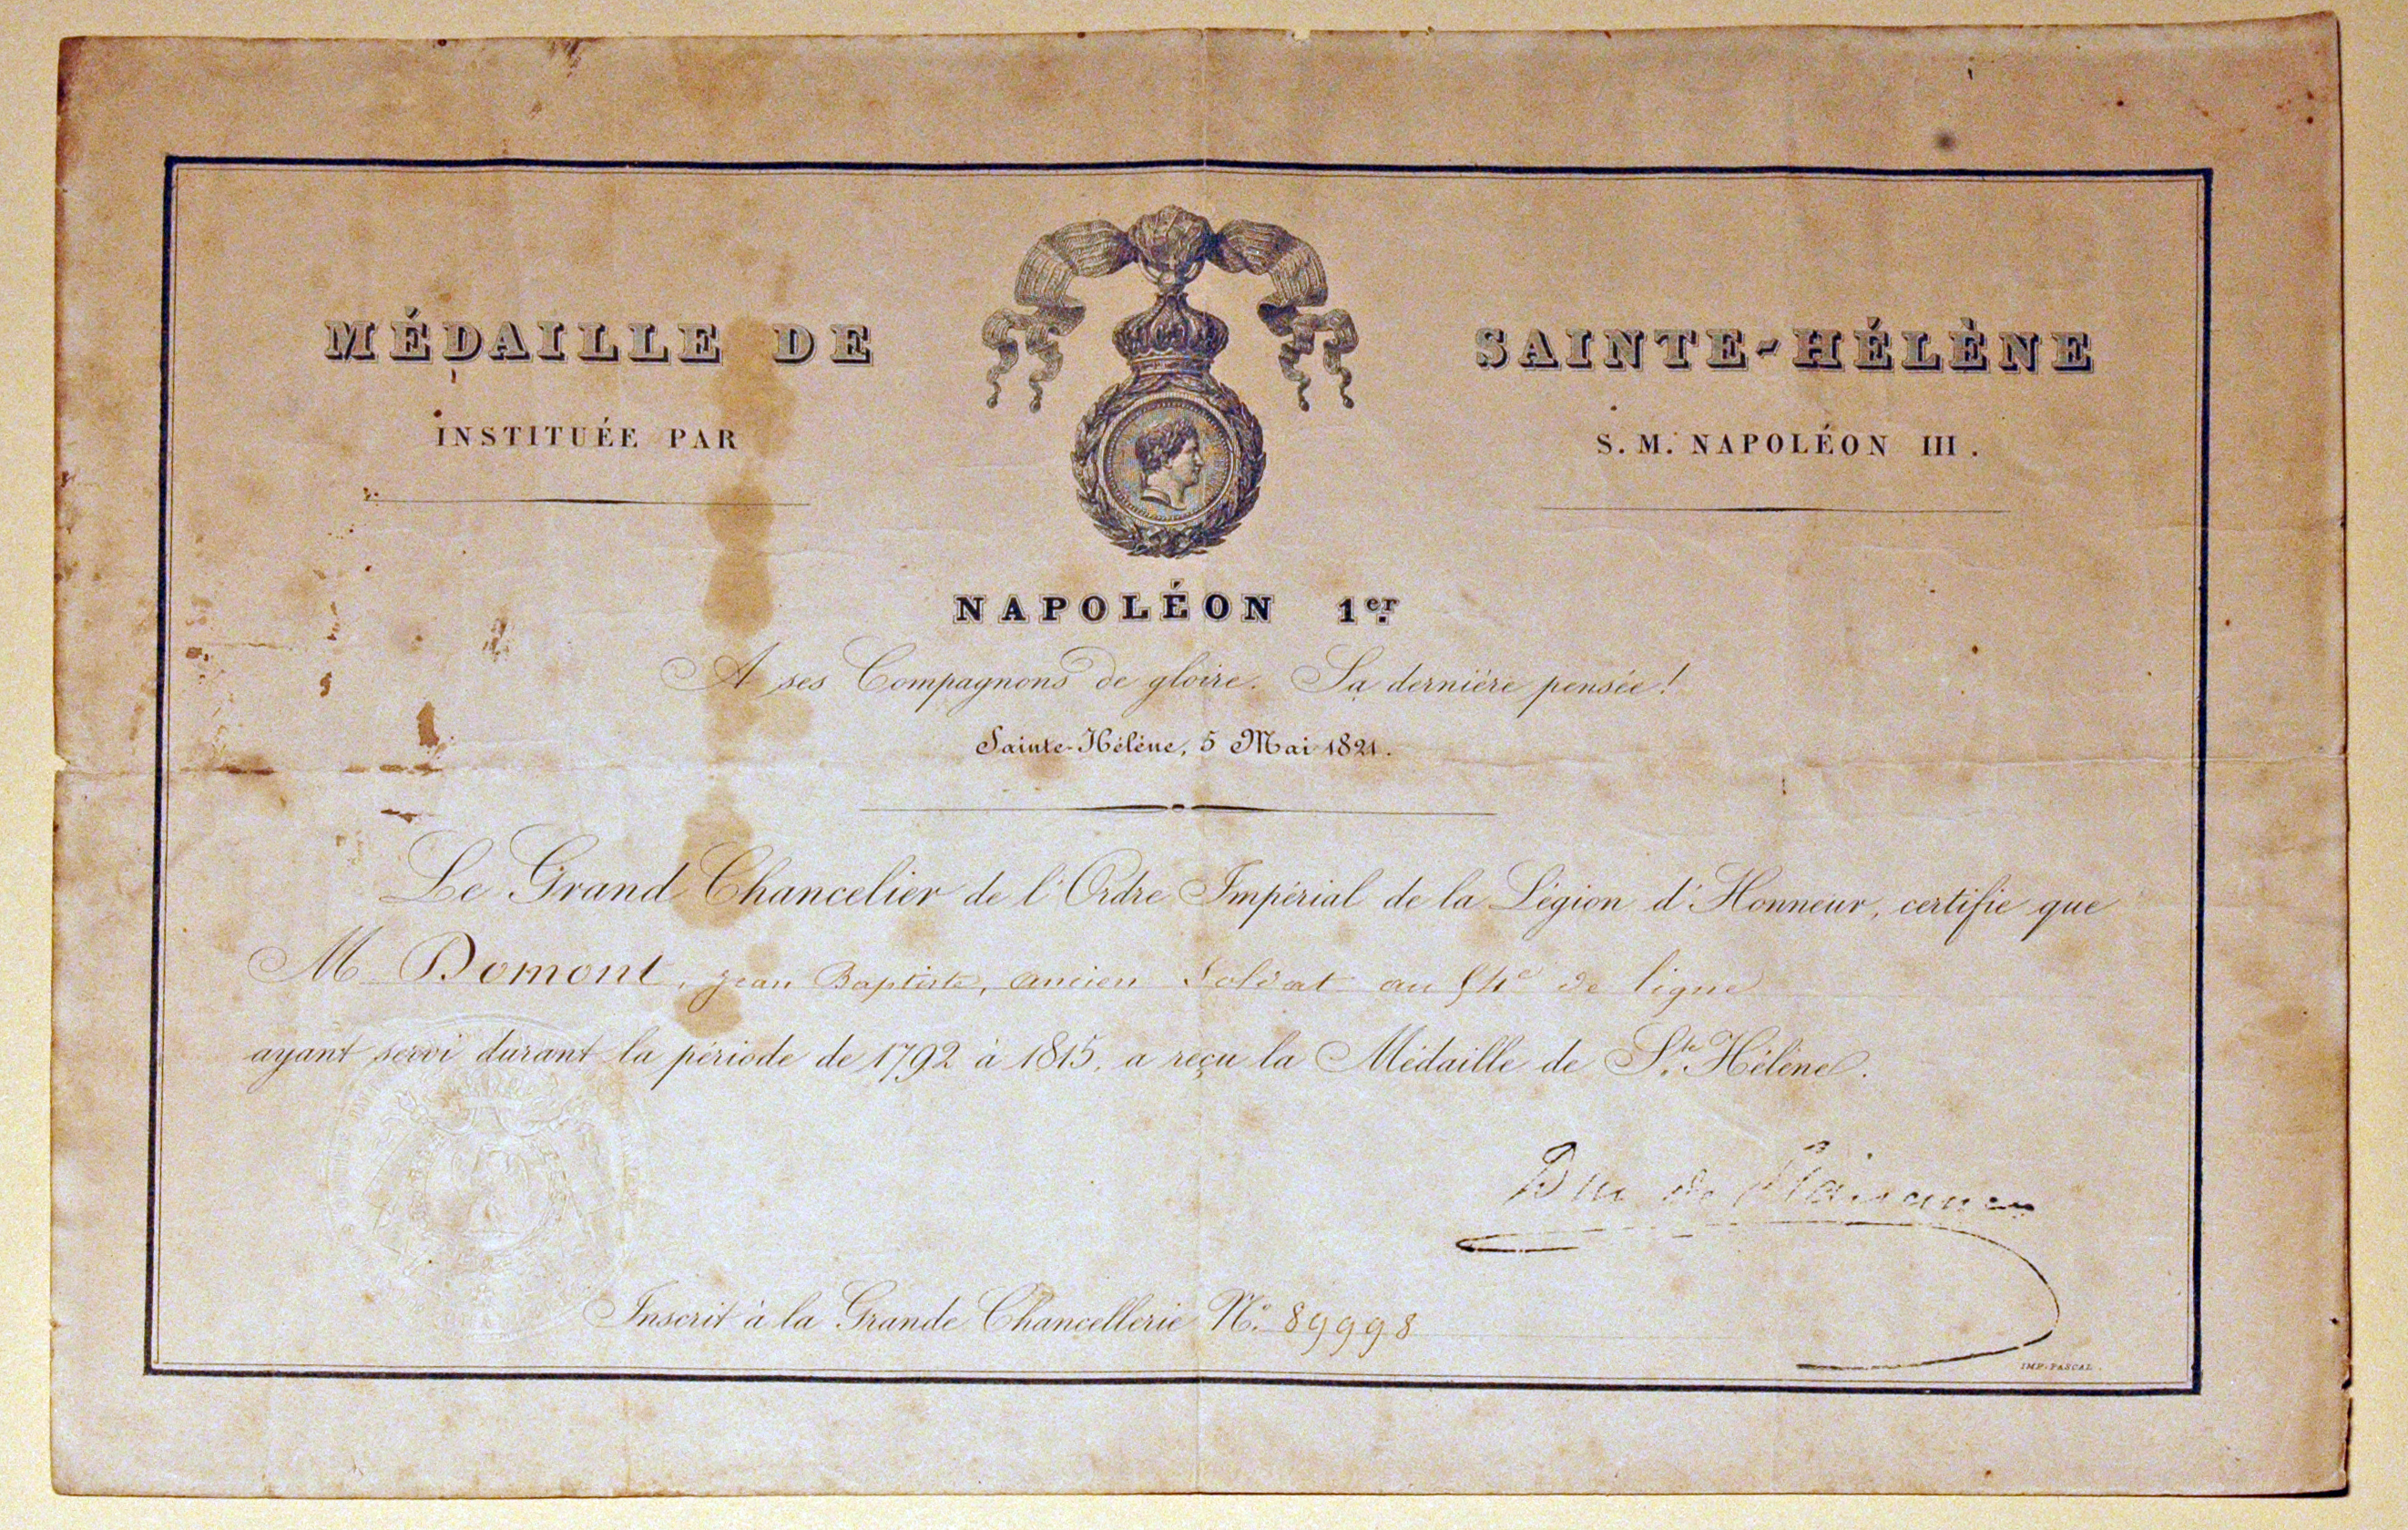 MÉDAILLE DE SAINTE-HÉLÈNE
INSTITUÉE PAR S. M. NAPOLÉON III.
NAPOLÉON 1er
A ses Compagnons de gloire. Sa dernière pensée!
Sainte-Hélène, 5 Mai 1821.
Le Grand Chancelier de l'Ordre Impérial de la Légion d'Honneur, certifie que
M Domont, jean Baptiste, ancien Soldat au 54e de ligne
ayant servi durant la période de 1792 à 1815, a reçu la Médaille de Ste Hélène.
Duc de Plaisance
Inscrit à la Grande Chancellerie No. 89998
IMP. PASCAL.